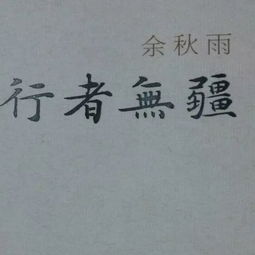 余秋雨
行者無疆